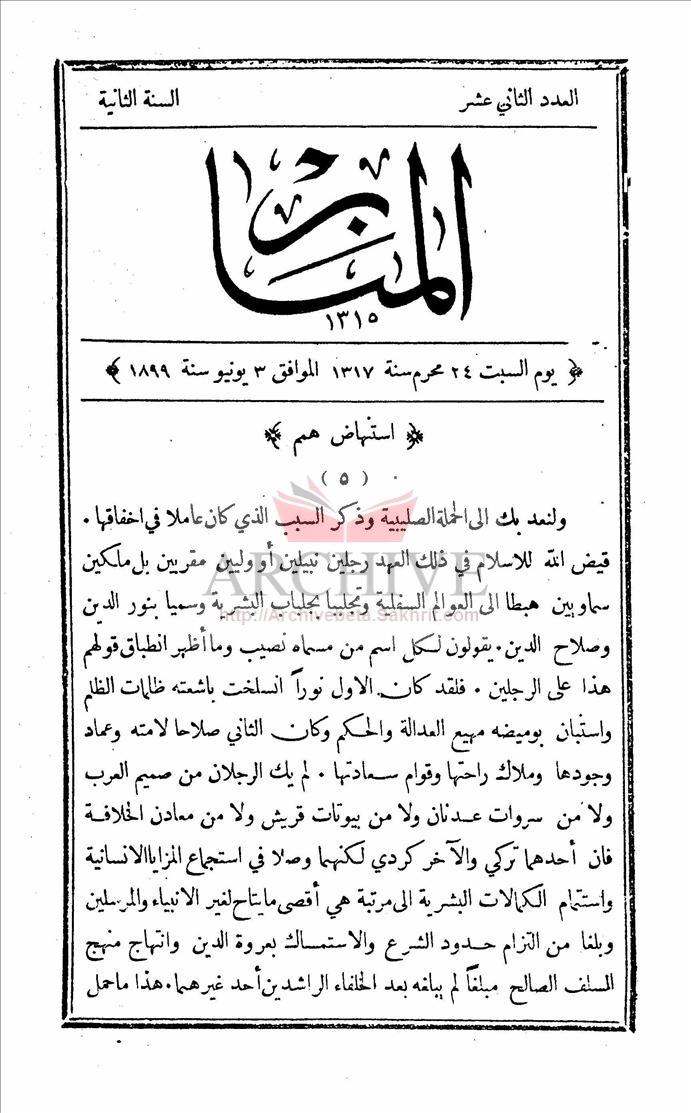 العدد الثاني عشر السنة الثانية
المنار
١٣١٥
﴿ يوم السبت ٢٤ محرم سنة ١٣١٧ الموافق ٣ يونيو سنة ١٨٩٩ ﴾
﴿ استنهاض همم ﴾
( ٥ )
ولنعد بك الى الحملة الصليبية وذكر السبب الذي كان عاملا في اخفاقها .
قيض الله للاسلام في ذلك العهد رجلين نبيلين أو وليين مقربين بل ملكين
ARCHIVE
سماويين هبطا الى العوالم السفلية وتجلببا بجلباب البشرية وسميا بنور الدين
http://Archivebeta.Sakhrit.com
وصلاح الدين . يقولون لكل اسم من مسماه نصيب وما أظهر انطباق قولهم
هذا على الرجلين . فلقد كان الاول نوراً انسلخت باشعته ظلمات الظلم
واستبان بوميضه مهيع العدالة والحكم وكان الثاني صلاحا لامته وعماد
وجودها وملاك راحتها وقوام سعادتها . لم يك الرجلان من صميم العرب
ولا من سروات عدنان ولا من بيوتات قريش ولا من معادن الخلافة
فان أحدهما تركي والآخر كردي لكنهما وصلا في استجماع المزايا الانسانية
واستتمام الكمالات البشرية الى مرتبة هي أقصى ما يتاح لغير الانبياء والمرسلين
وبلغا من التزام حدود الشرع والاستمساك بعروة الدين وانتهاج منهج
السلف الصالح مبلغاً لم يبلغه بعد الخلفاء الراشدين أحد غيرهما . هذا ما حمل